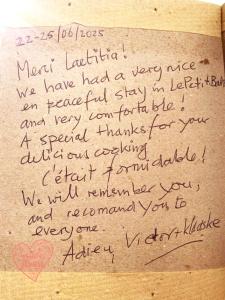 22-25/06/2025
Merci Laetitia!
We have had a very nice
en peaceful stay in LePetit
and very comfortable!
A special thanks for your
delicious cooking
C'était formidable!
We will remember you,
and recomand you to
everyone.
Adieu, Victor + Klaaske